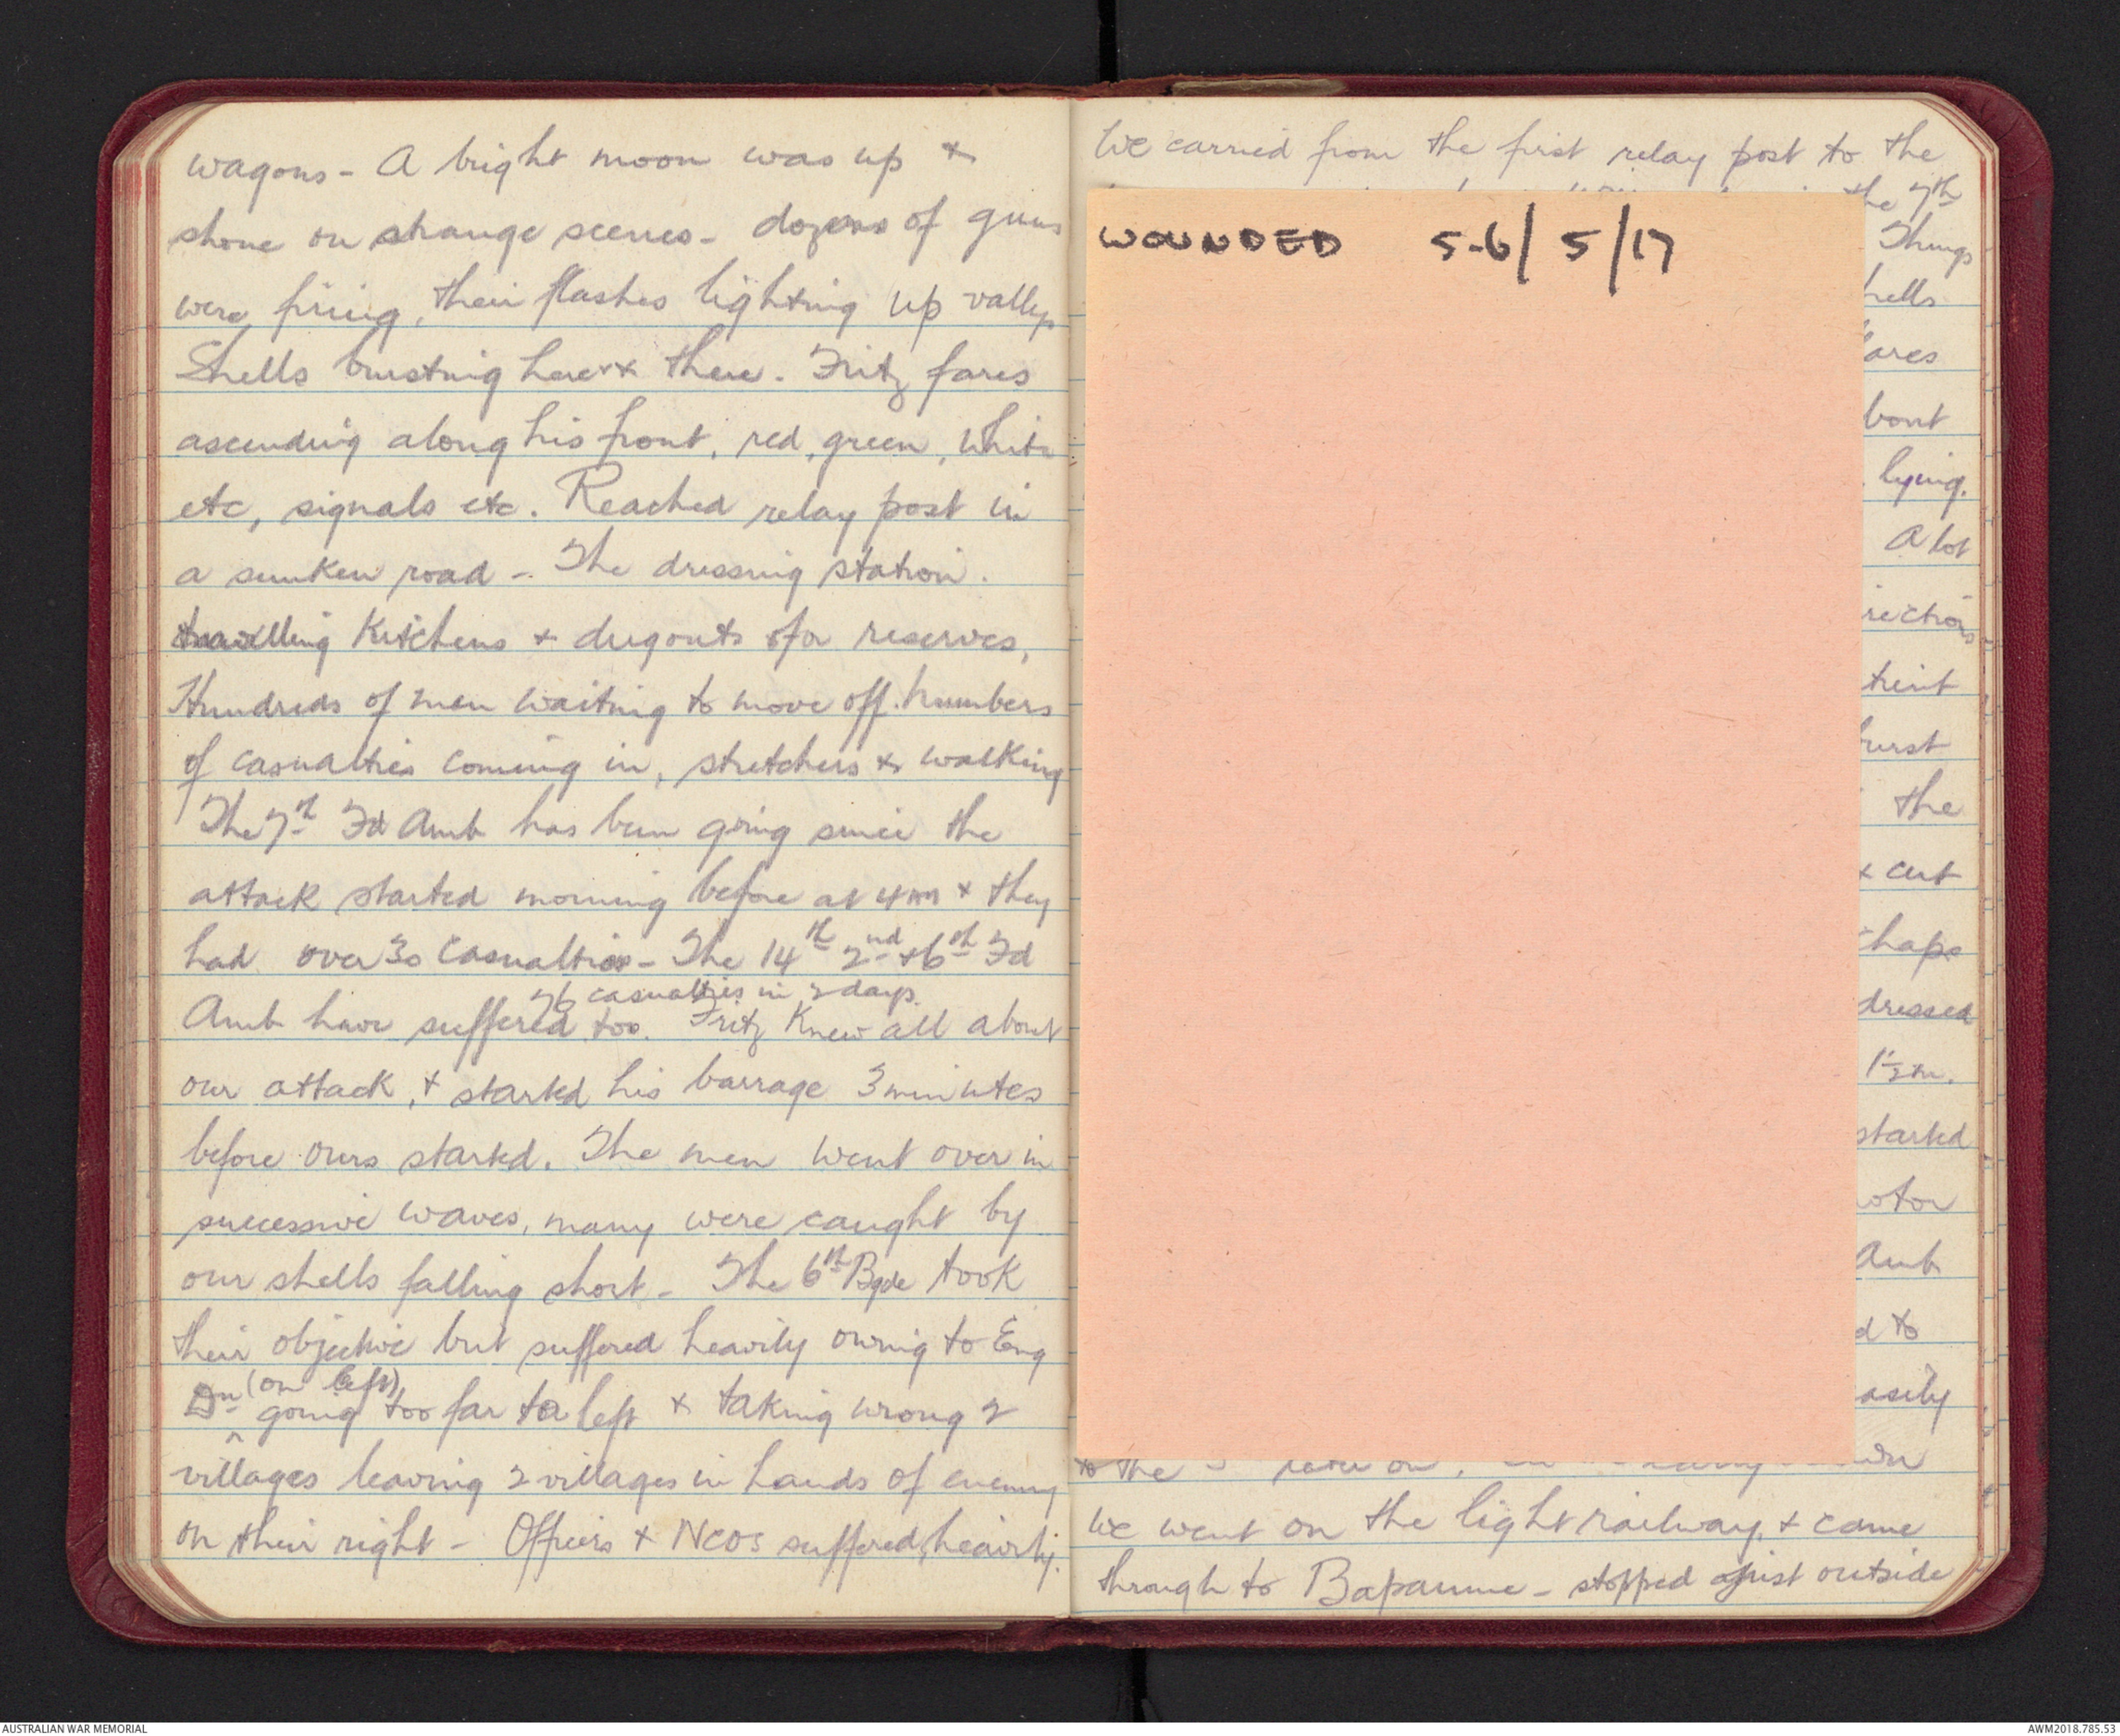 wagons - A bright moon was up &
shone on strange scenes - dozens of guns
were firing, their flashes lighting up valleys
Shells bursting here & there. Fritz fares
ascending along his front, red, green, white
etc, signals etc. Reached relay post in
a sunken road - The dressing station.
travelling Kitchens & dugouts for reserves,
Hundreds of men waiting to move off. Numbers
of casualties coming in, stretchers & walking
The 7th Fd Amb has been going since the
attack started morning before at 4am & they
had over 30 casualties - The 14th 2nd & 6th Fd
76 casualties in 2 days.
Amb have suffered too. Fritz Knew all about
our attack, & started his barrage 3 minutes
before ours started. The men went over in
successive waves, many were caught by
our shells falling short - The 6th Bgde took
their objective but suffered heavily owing to Eng
Dn (on left) going too far to left & taking wrong 2
villages leaving 2 villages in hands of enemy
on their right - Officers & NCOs suffered heavily.
We carried from the first relay post to the
the 7th
WOUNDED 5-6/5/17
Things
hells
lares
bout
lying.
A lot
rections
tient
burst
the
& cut
chaps
dressed
1½m.
started
otor
Amb
d to
asily
to the
We went on the light railway, & came
through to Bapaume - stopped just outside
AUSTRALIAN WAR MEMORIAL
AWM2018.785.53